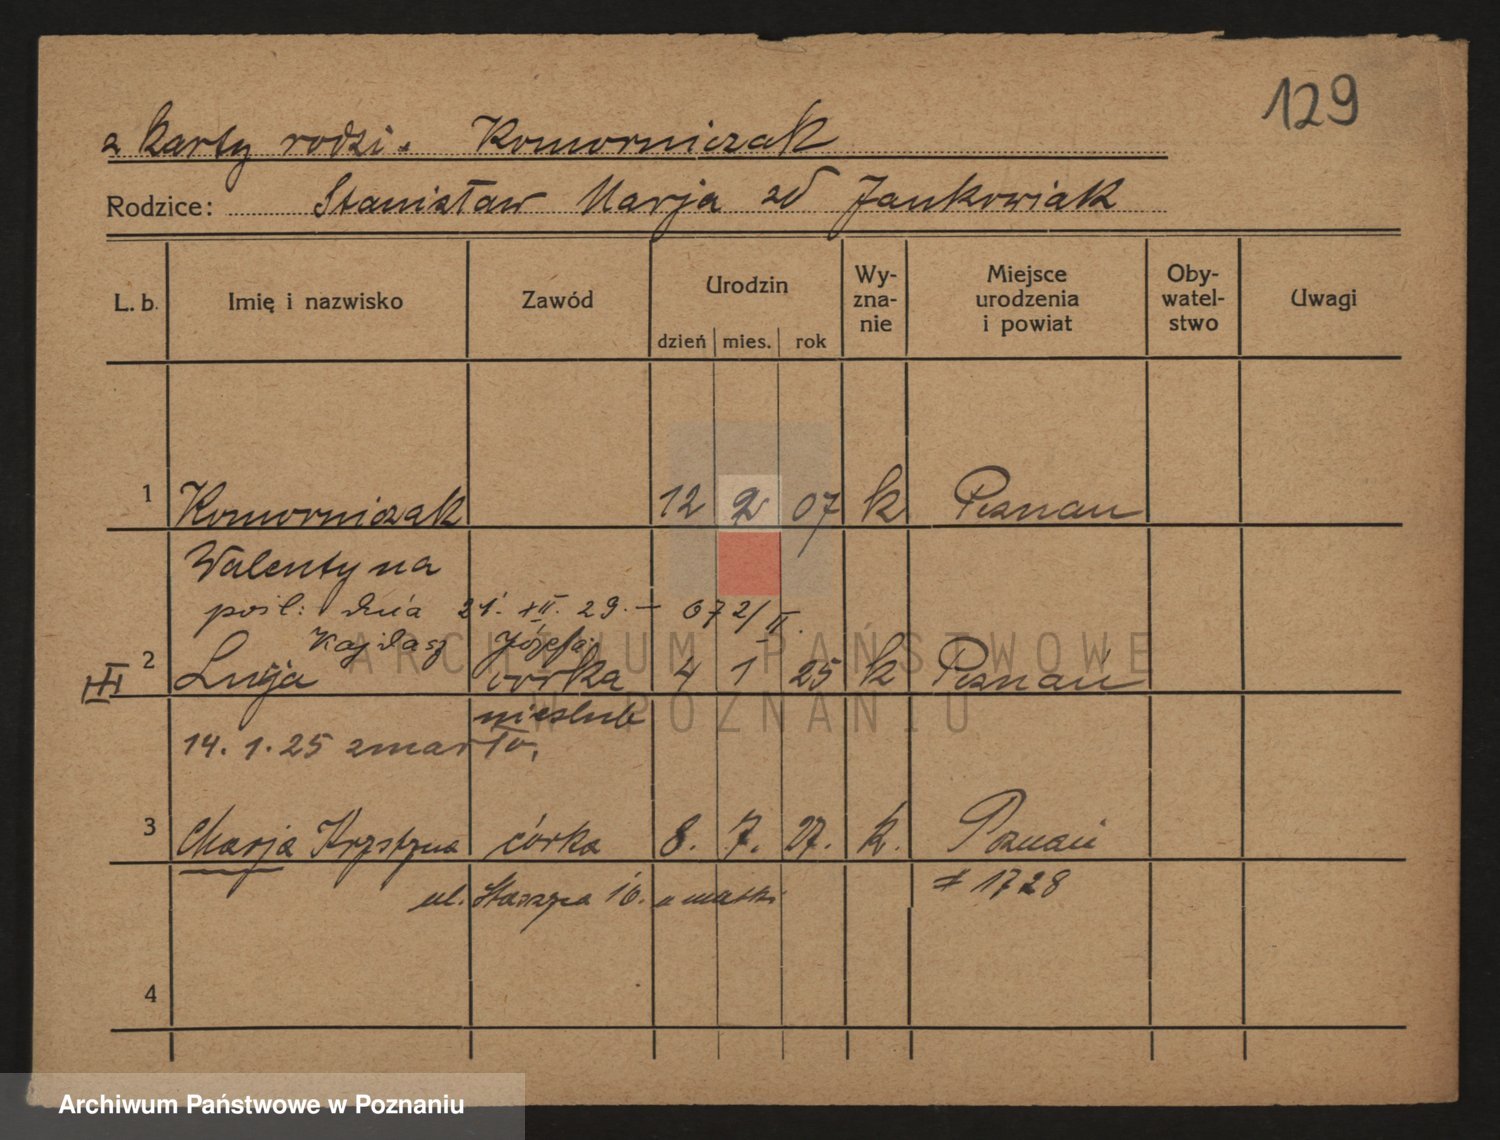 129
z karty rodzi. Komorniczak
Rodzice: Stanisław Marja zd Jankowiak
L. b. Imię i nazwisko Zawód Urodzin Wy-zna-nie Miejsce urodzenia i powiat Oby-watel-stwo Uwagi
dzień mies. rok
1 Komorniczak 12 2 07 k Poznań
Walentyna
pośl: dnia 21. XII. 29. — 672/II.
Kajdasz Józefa
2 Lucja córka 4 1 25 k Poznań
nieślub
14. 1. 25 zmarło,
3 Marja Krystyna córka 8. 7. 27. k. Poznań
ul. Staszyca 16. u matki # 1728
4
ARCHIWUM PAŃSTWOWE
W POZNANIU
Archiwum Państwowe w Poznaniu